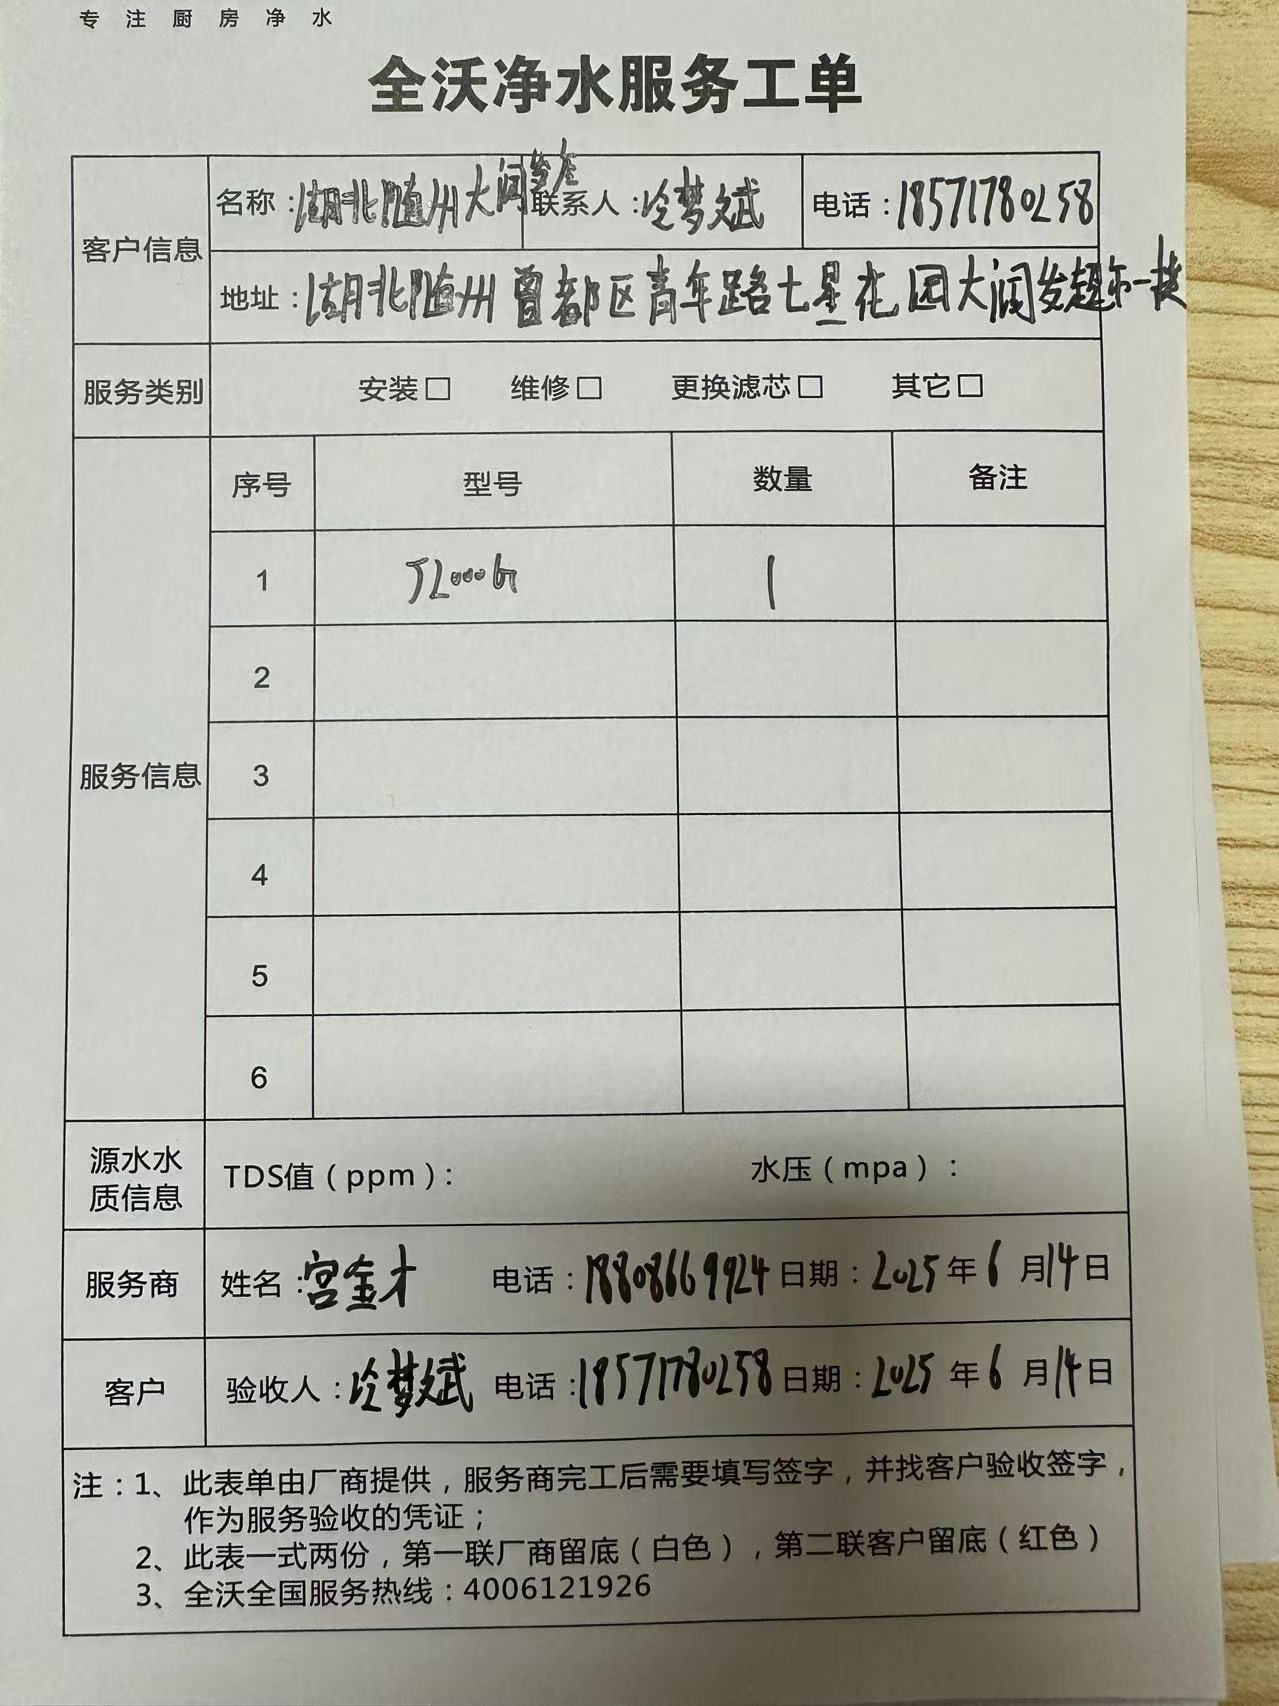 专注厨房净水
全沃净水服务工单
客户信息
名称：湖北随州大润发店 联系人：冷梦斌 电话：18571780258
地址：湖北随州曾都区青年路七星花园大润发超市一楼
服务类别 安装□ 维修□ 更换滤芯□ 其它□
服务信息
序号 型号 数量 备注
1 JL000G 1
2
3
4
5
6
源水水质信息 TDS值（ppm）： 水压（mpa）：
服务商 姓名：宫金才 电话：18808669924 日期：2025年6月14日
客户 验收人：冷梦斌 电话：18571780258 日期：2025年6月14日
注：1、此表单由厂商提供，服务商完工后需要填写签字，并找客户验收签字，
作为服务验收的凭证；
2、此表一式两份，第一联厂商留底（白色），第二联客户留底（红色）
3、全沃全国服务热线：4006121926